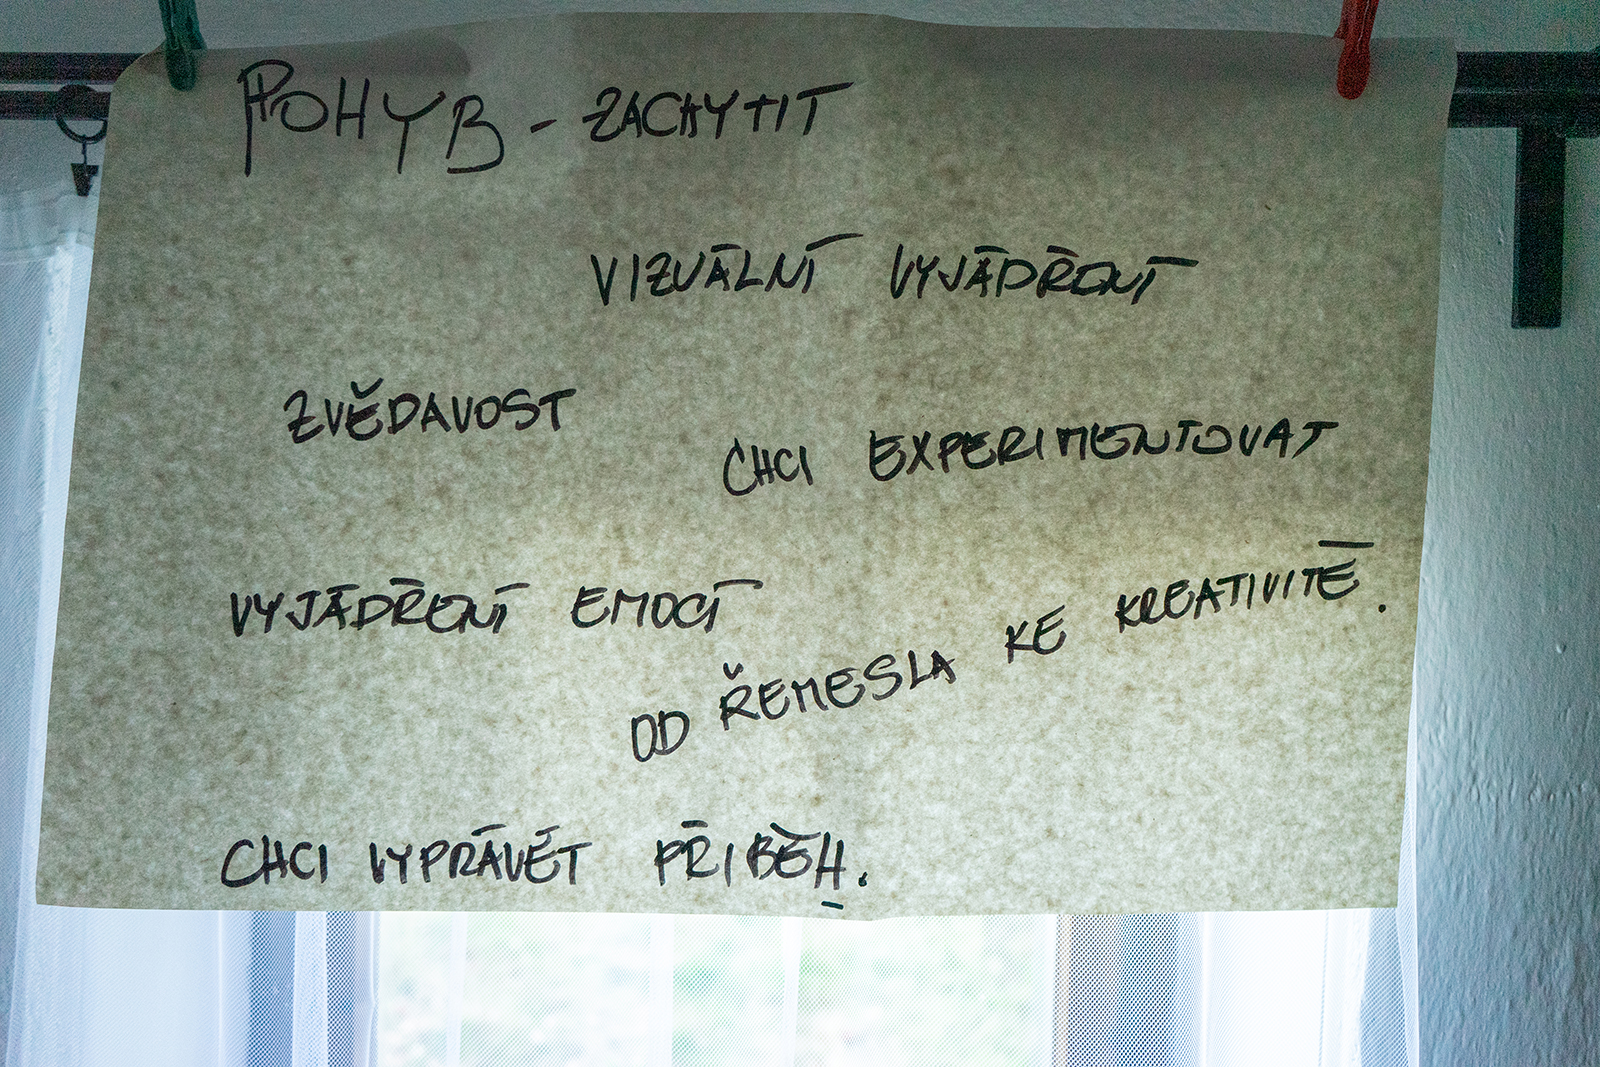 POHYB - ZACHYTIT
VIZUÁLNÍ VYJÁDŘENÍ
ZVĚDAVOST
CHCI EXPERIMENTOVAT
VYJÁDŘENÍ EMOCÍ
OD ŘEMESLA KE KREATIVITĚ.
CHCI VYPRÁVĚT PŘÍBĚH.